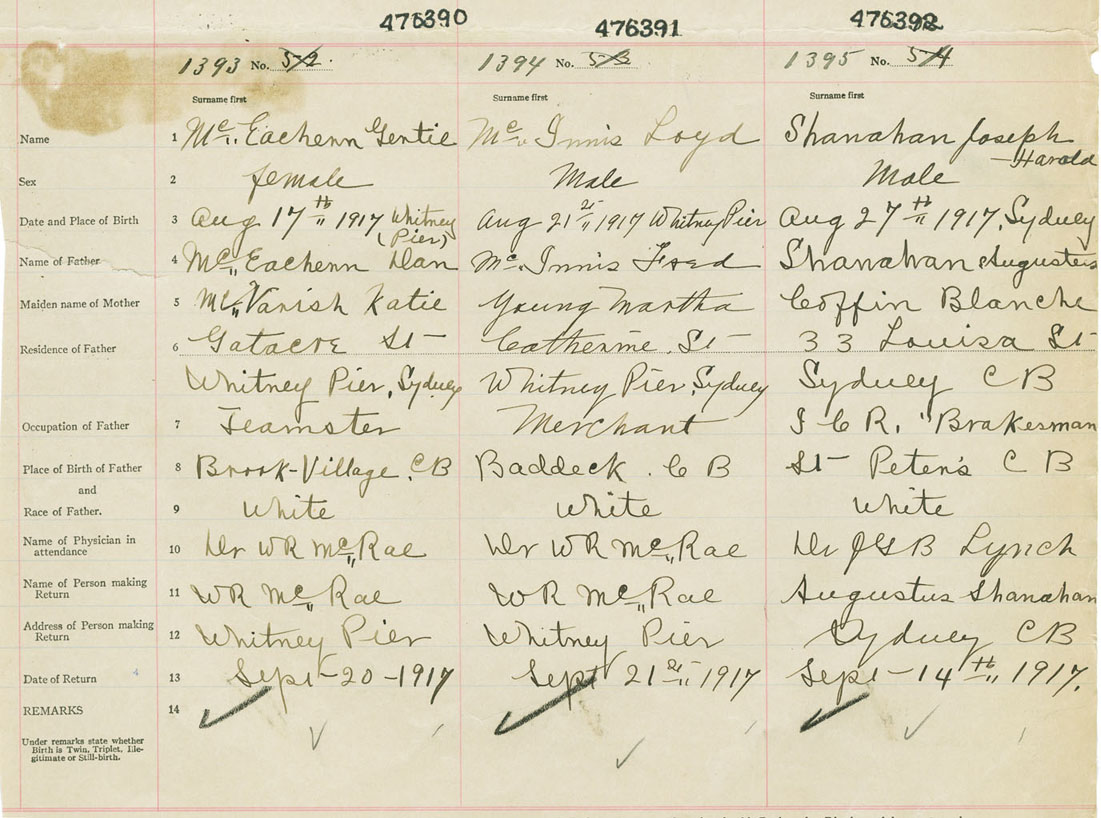 476390 476391 476392
1393 No. 52. 1394 No. 53 1395 No. 54
Surname first Surname first Surname first
Name 1 Mc Eachern Gentie Mc Innis Loyd Shanahan Joseph
Harold
Sex 2 female Male Male
Date and Place of Birth 3 Aug 17th 1917 Whitney Aug 21st 1917 Whitney Pier Aug 27th 1917, Sydney
(Pier)
Name of Father 4 Mc Eachern Dan Mc Innis Fred Shanahan Augustus
Maiden name of Mother 5 Mc Varish Katie Young Martha Coffin Blanche
Residence of Father 6 Gatacre St Catherine St 33 Louisa St
Whitney Pier, Sydney Whitney Pier, Sydney Sydney C B
Occupation of Father 7 Teamster Merchant I C R, Brakesman
Place of Birth of Father 8 Brook-Village, C B Baddeck. C B St Peter's C B
and
Race of Father. 9 White White White
Name of Physician in
attendance 10 Dr W R Mc Rae Dr W R Mc Rae Dr J G B Lynch
Name of Person making
Return 11 W R Mc Rae W R Mc Rae Augustus Shanahan
Address of Person making
Return 12 Whitney Pier Whitney Pier Sydney C B
Date of Return 13 Sept-20-1917 Sept 21st 1917 Sept-14th 1917.
REMARKS 14
Under remarks state whether
Birth is Twin, Triplet, Ille-
gitimate or Still-birth.